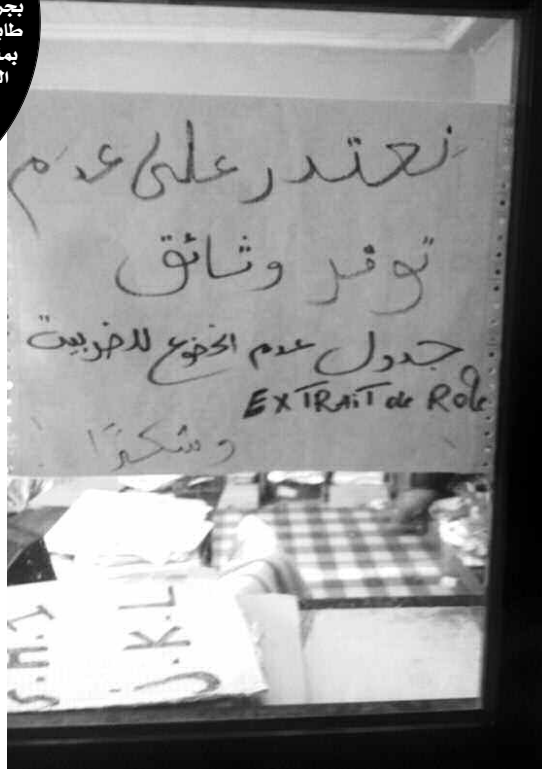 نعتدر على عدم
توفر وثائق
جدول عدم الخضوع للضريبة
EXTRAIT de Role
وشكرًا
J.K.L